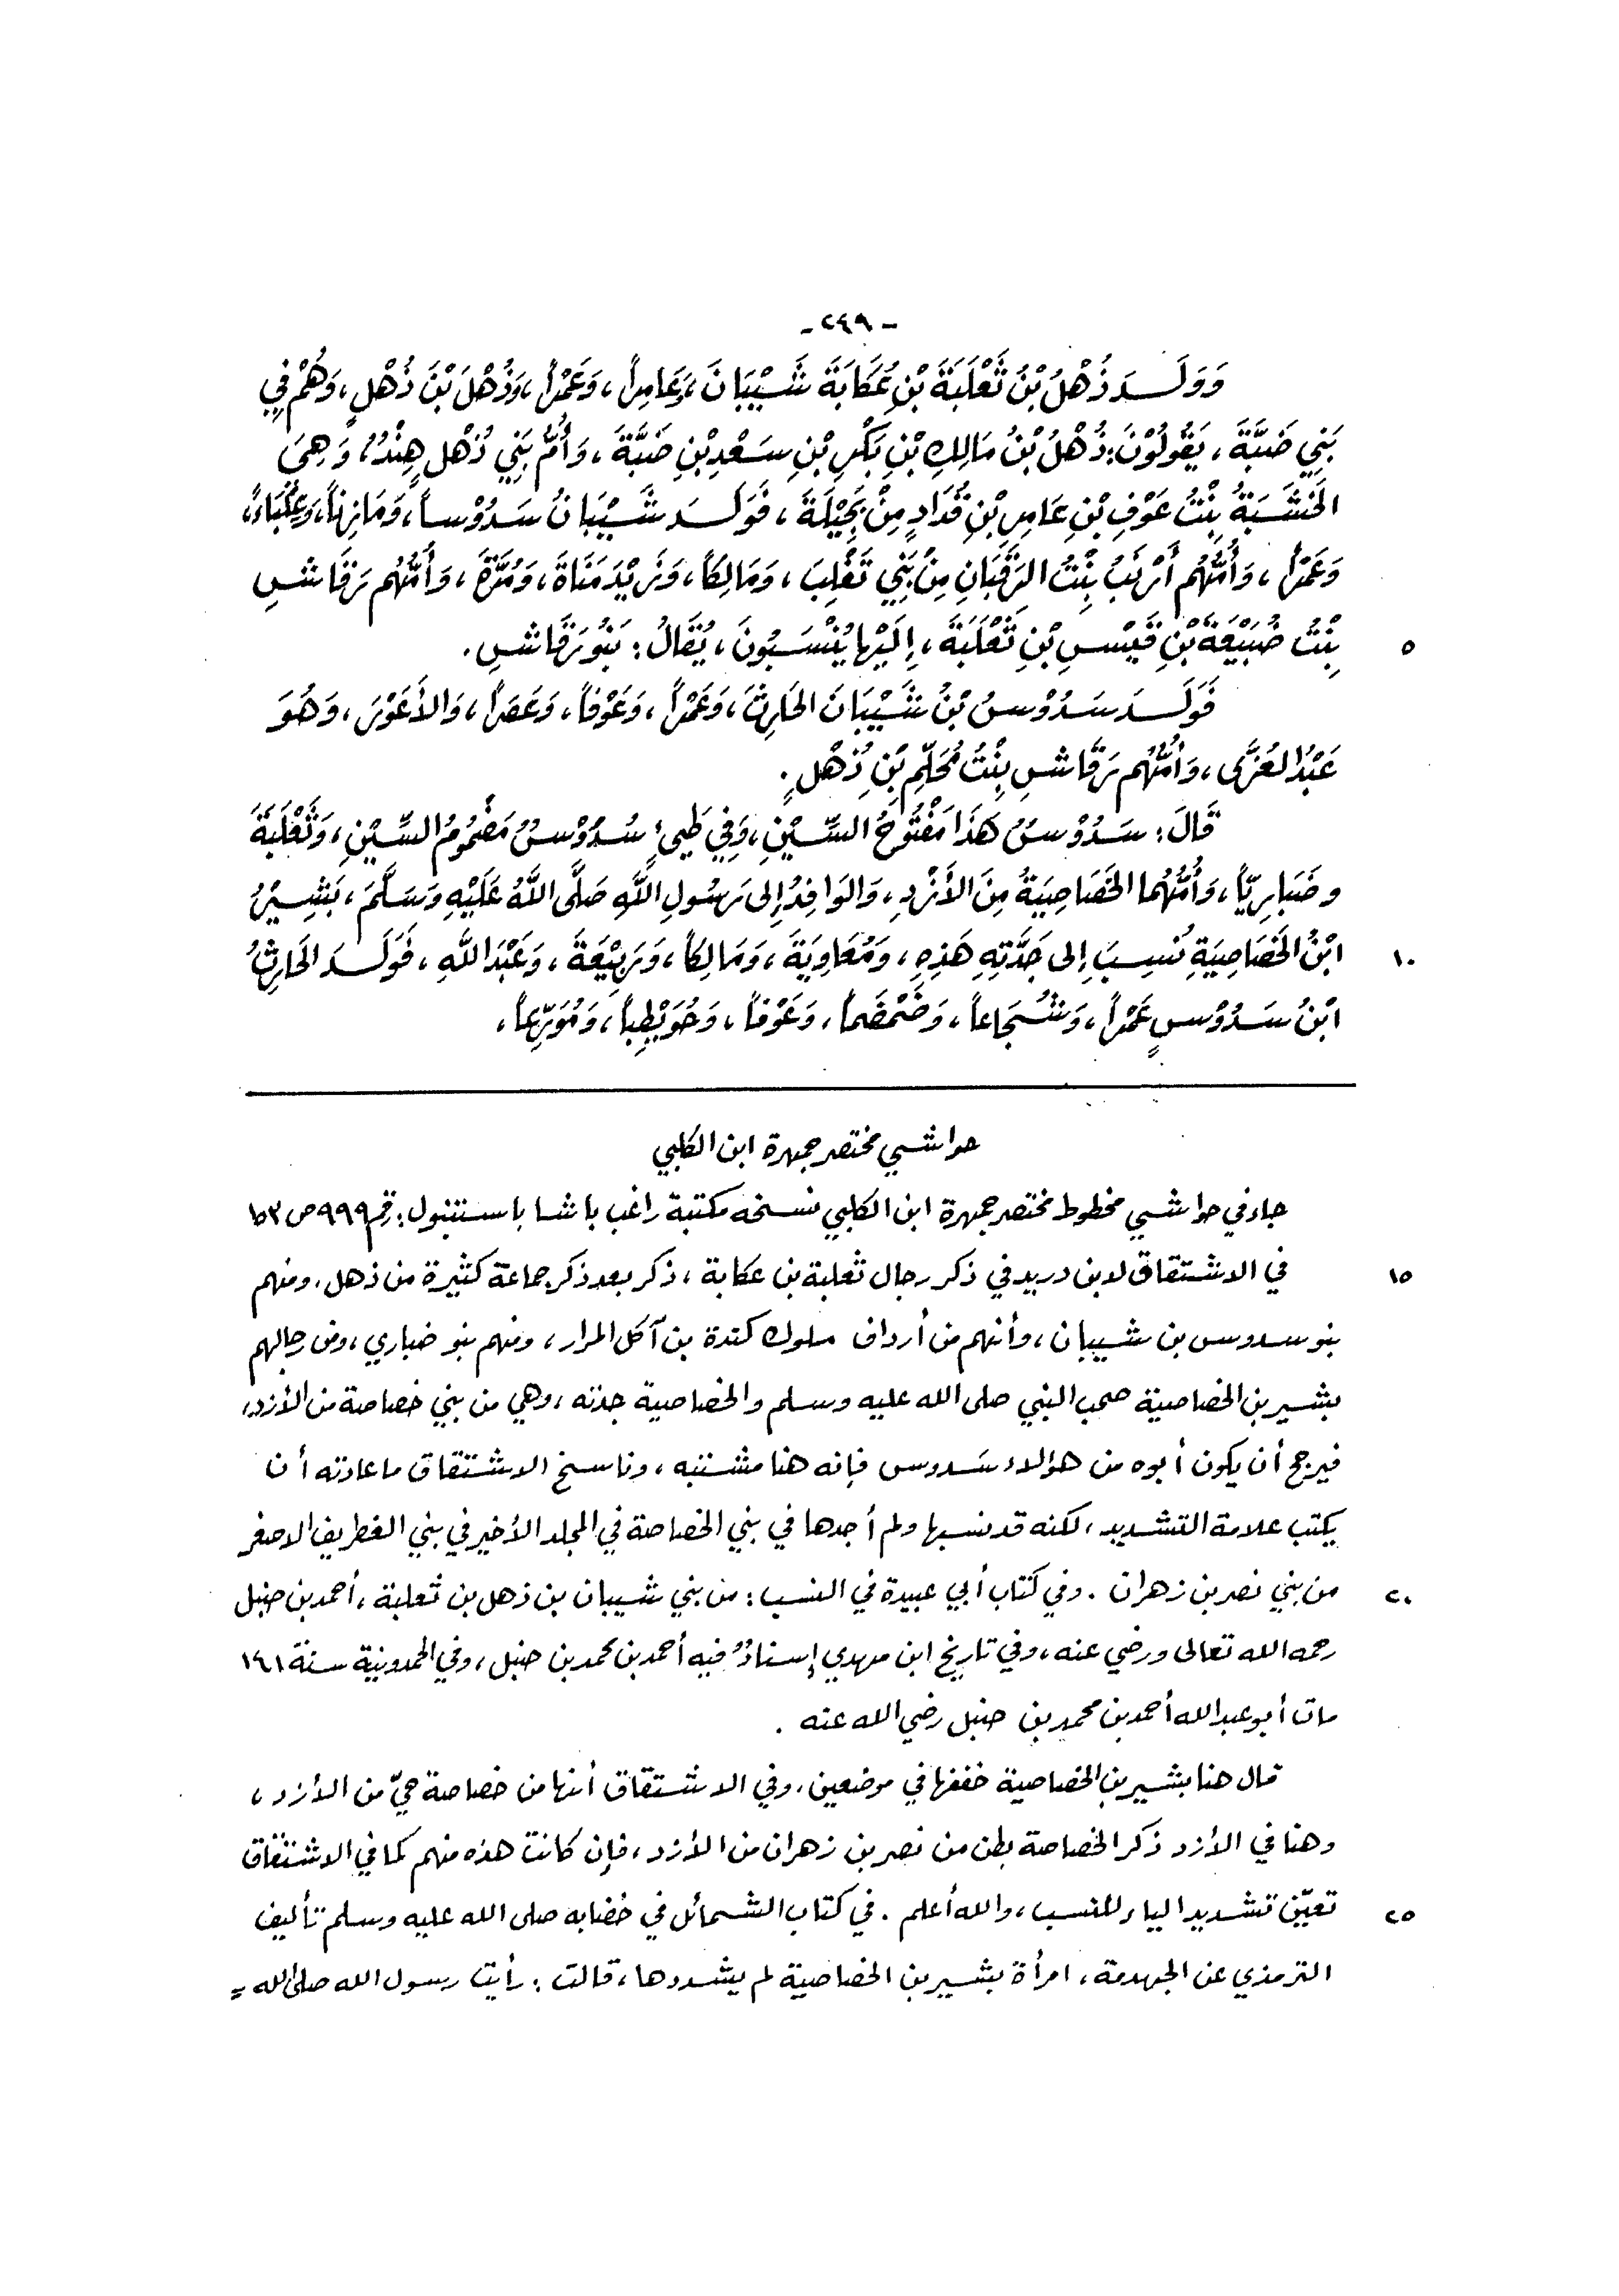 - ٢٤٩ -
وَوَلَـدَ ذُهْلُ بْنُ ثَعْلَبَةَ بْنِ عُكَابَةَ شَيْبَانَ، وَعَامِراً، وَعَمْراً، وَذُهْلَ بْنَ ذُهْلٍ، وَهُمْ فِي
بَنِي ضَبَّةَ، يَقُوْلُوْنَ: ذُهْلُ بْنُ مَالِكِ بْنِ بَكْرِ بْنِ سَعْدِ بْنِ ضَبَّةَ، وَأُمُّ بَنِي ذُهْلٍ هِنْدُ، وَهِيَ
الخَشَبَةُ بِنْتُ عَوْفِ بْنِ عَامِرِ بْنِ قُدَادٍ مِنْ بَجِيْلَةَ، فَوَلَـدَ شَيْبَانُ سَدُوْساً، وَمَازِناً، وَعِلْبَاءَ،
وَعَمْراً، وَأُمُّهُم أَرْنَبُ بِنْتُ الرَّقَبَانِ مِنْ بَنِي تَغْلِبَ، وَمَالِكاً، وَزَيْدَ مَنَاةَ، وَمُرَّةَ، وَأُمُّهُم رَقَاشِ
٥ بِنْتُ ضُبَيْعَةَ بْنِ قَيْسِ بْنِ ثَعْلَبَةَ، إِلَيْها يُنْسَبُونَ، يُقَالُ: بَنُو رَقَاشِ.
فَوَلَـدَ سَدُوْسُ بْنُ شَيْبَانَ الحَارِثَ، وَعَمْراً، وَعَوْفاً، وَعَصَراً، وَالأَعْوَرَ، وَهُوَ
عَبْدُ العُزَّى، وَأُمُّهُم رَقَاشِ بِنْتُ مُحَلِّمِ بْنِ ذُهْلٍ.
قَالَ: سَدُوْسُ هَذَا مَفْتُوحُ السِّيْنِ، وَفِي طَيىءٍ سُدُوْسُ مَضْمُومُ السِّيْنِ، وَثَعْلَبَةَ
وضَبَارِيّاً، وَأُمُّهُما الخَصَاصِيَةُ مِنَ الأَزْدِ، وَالوَافِدُ إِلى رَسُولِ اللَّهِ صَلَّى اللَّهُ عَلَيْهِ وَسَلَّمَ، بَشِيْرُ
١٠ ابْنُ الخَصَاصِيَةِ نُسِبَ إِلى جَدَّتِهِ هَذِهِ، وَمُعَاوِيَةَ، وَمَالِكاً، وَرَبِيْعَةَ، وَعَبْدَ اللَّهِ، فَوَلَـدَ الحَارِثُ
ابْنُ سَدُوْسٍ عَمْراً، وَشُجَاعاً، وَضَمْضَماً، وَعَوْفاً، وَحُوَيْطِباً، وَمُوَرِّعاً،
حواشي مختصر جمهرة ابن الكلبي
جاء في حواشي مخطوط مختصر جمهرة ابن الكلبي نسخه مكتبة راغب باشا باستنبول: رقم ٩٩٩ ص
١٥ في الاشتقاق لابن دريد في ذكر رجال ثعلبة بن عكابة، ذكر بعد ذكر جماعة كثيرة من ذهل، ومنهم
بنو سدوس بن شيبان، وأنهم من أرداف ملوك كندة بن آكل المرار، ومنهم بنو ضباري، ومن رجالهم
بشير بن الخصاصية صحب النبي صلى الله عليه وسلم والخصاصية جدته، وهي من بني خصاصة من الأزد،
فيرجح أن يكون أبوه من هؤلاء سَدوس فإنه هنا مشتبه، وناسخ الاشتقاق ما عادته أن
يكتب علامة التشديد، لكنه قد نسبها ولم أجدها في بني الخصاصة في المجلد الأخير في بني الغطريف الاصغر
٢٠ من بني نصر بن زهران. وفي كتاب أبي عبيدة في النسب: من بني شيبان بن ذهل بن ثعلبة، أحمد بن حنبل
رحمه الله تعالى ورضي عنه، وفي تاريخ ابن مهدي إسنادٌ فيه أحمد بن محمد بن حنبل، وفي الحمدونية سنة ٢٤١
مات أبو عبد الله أحمد بن محمد بن حنبل رضي الله عنه.
قال هنا بشير بن الخصاصية خففها في موضعين، وفي الاشتقاق أنها من خصاصة حيّ من الأزد،
وهنا في الأزد ذكر الخصاصة بطن من نصر بن زهران من الأزد، فإن كانت هذه منهم كما في الاشتقاق
٢٥ تعيّن تشديد الياء للنسب، والله أعلم. في كتاب الشمائل في خضابه صلى الله عليه وسلم تأليف
الترمذي عن الجهدمة، امرأة بشير بن الخصاصية لم يشددها، قالت: رأيت رسول الله صلى الله =